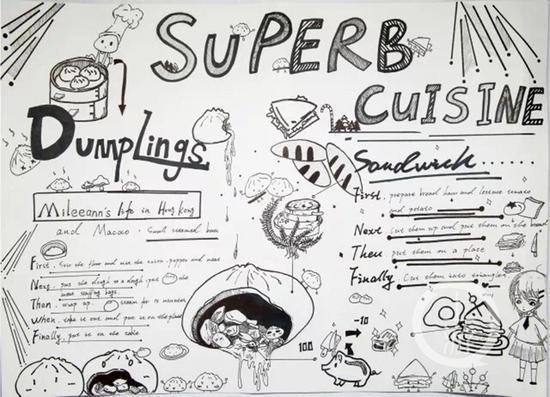 SUPERB
CUISINE
Dumplings
Mileeann's life in Hong kong
and Macao. Small steamed bun
First. the and mix the onion. pepper and meat
Next. put the dough to a dough. put the
Then. wrap up. steam for 10 minutes
When. take it one and put it on the plate
Finally. put it on the table
100
Sandwich......
First. prepare bread ham and lettuce tomato
and potato
Next cut them up and put them on the bread
Then put them on a place
Finally. Cut them into triangles
-10